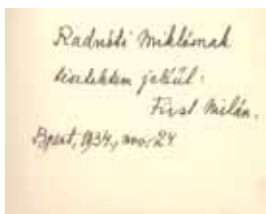 Radnóti Miklósnak
tiszteletem jeléül.
Füst Milán.
Bpest, 1934, nov. 24